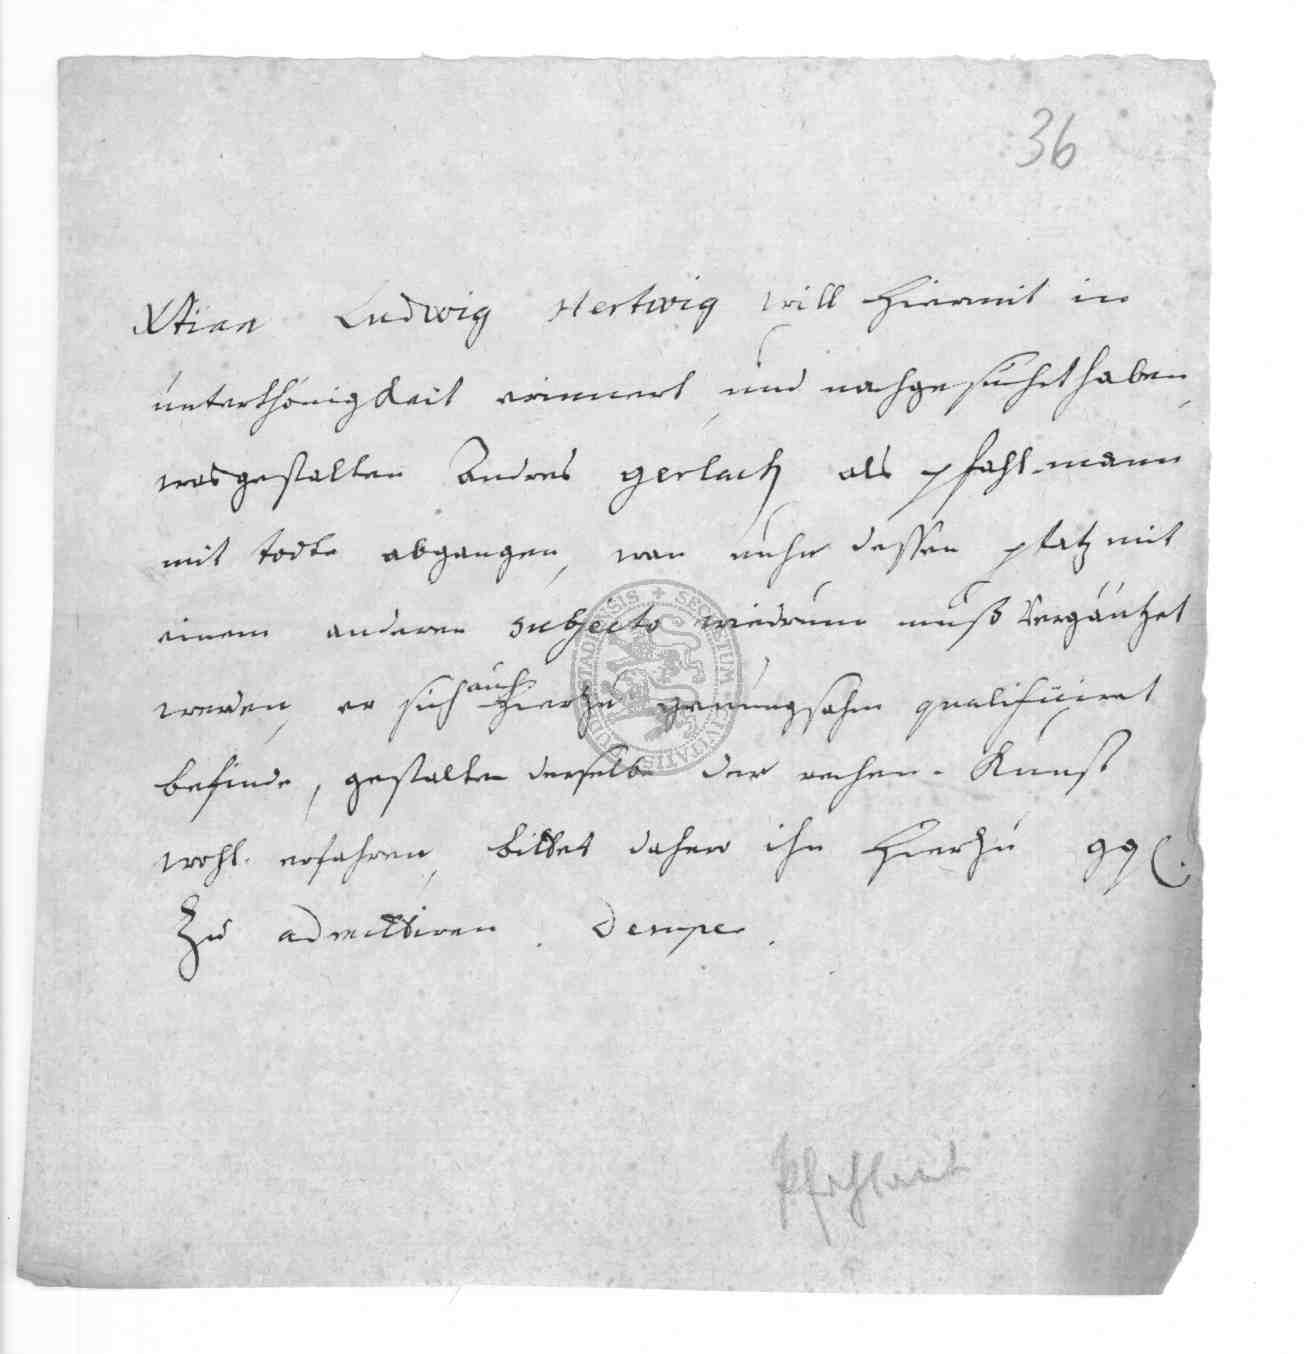 36
Xtian Ludwig Hertwig will hiermit in
unterthönigkeit erinnert und nachgesucht haben,
wasgestalten Andres gerlach als pfahl-mann
mit todte abgangen, wan nuhn dessen platz mit
einem anderen subjecto wiedrum muß Vergäntzet
werden, er sich auch hierzu genungsahm qualificiret
befinde, gestalten derselbe der rechen-Kunst
wohl erfahren, bittet daher ihn hierzu gg
Zu admittiren. Dempe.
Pfahlamt
SECRETUM CIVITATIS